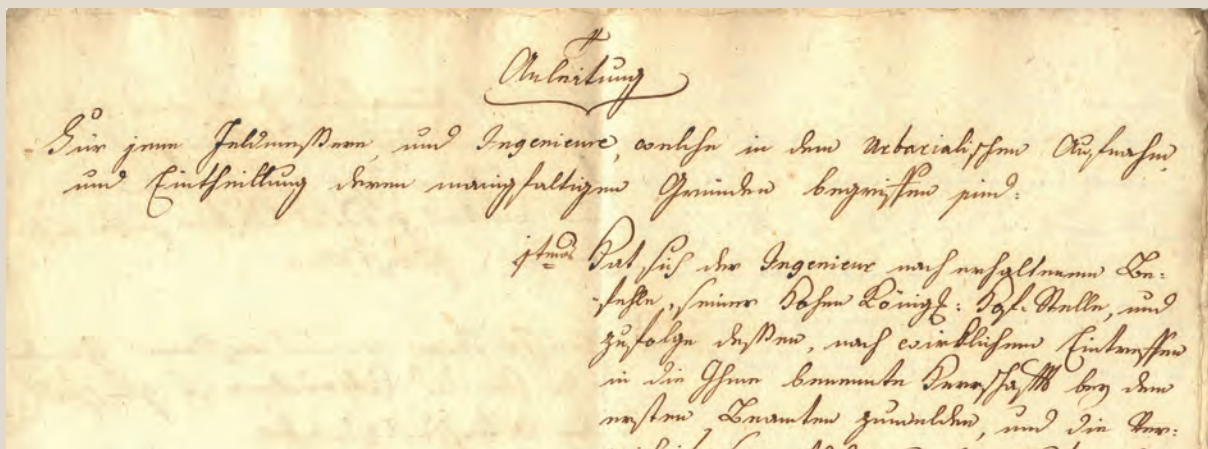 Anleitung
Für jene Feldmeßere, und Ingenieure, welche in dem Urbarialischen Aufnahm,
und Eintheillung deren mannigfaltigen Gründen begriffen sind.
1tmo Hat sich der Ingenieur nach erhaltenem Be:
fehle, seiner hohen Königl: Stelle, und
zufolge deßen, nach wirklichem Eintreffen
in die Ihme benennte Herrschafft bey dem
ersten Beamten zumelden, und die Ver: